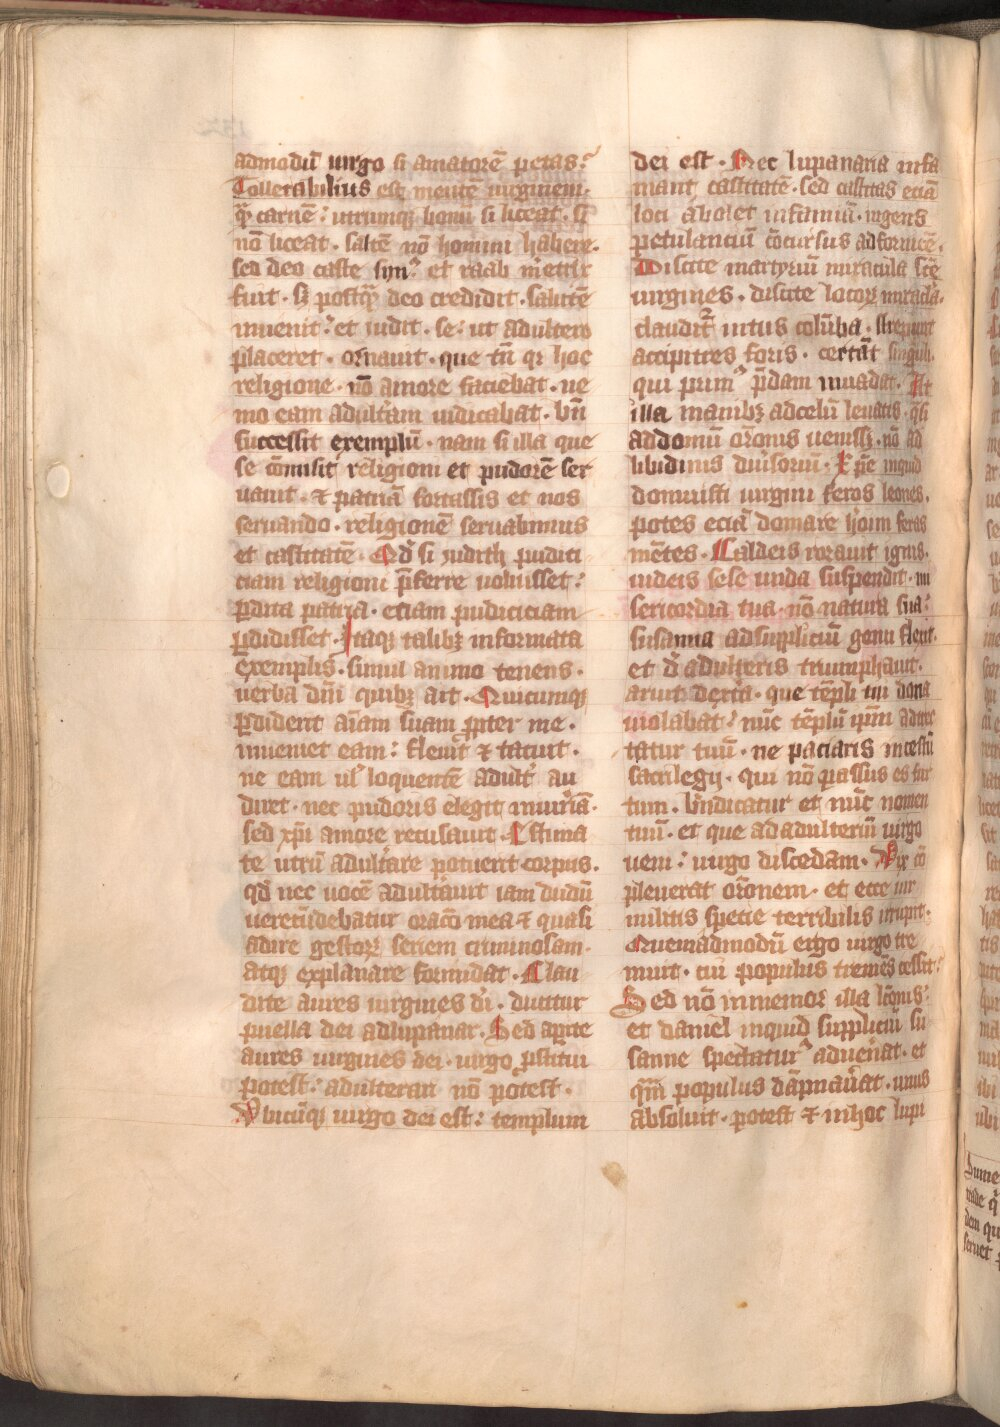 admodū uirgo si amatorē petas?
Tollerabilius est mentē uirginem·
q̄ carnē: utrumqȝ bonū si liceat· si
nō liceat· saltē nō homini habere·
sed deo caste syn⁹ et raab meͥtrix
fuit· sȝ postq̄ deo credidit· salutē
inuenit: et iudit· se: ut adultero
placeret· ornauit· que tn̄ qr hoc
religione· nō amore faciebat· ne
mo eam adulťam iudicabat· bn̄
successit exemplū· nam si illa que
se cōmisit religioni et pudorē ser
uauit· ⁊ patriā fortassis et nos
seruando· religionē seruabimus
et castitatē· Qd̄ si yudith pudici
ciam religioni p̄ferre uoluisset:
ꝑdita patria· etiam pudiciciam
ꝑdidisset· Itaqȝ talibȝ informata
exemplis· simul animo tenens·
uerba dn̄i quibȝ ait· Quicumqȝ
ꝑdiderit aīam suam ꝓpter me·
inueniet eam: fleuit ⁊ tacuit·
ne eam ul' loquentē adulť au
diret· nec pudoris elegit iniuriā·
sed xp̄i amore recusauit· Estima
te utrū adulťare potuerit corpus·
qd̄ nec uocē adulťauit iam dudū
uerecūdebatur oraco mea ⁊ quasi
adire gestoꝝ seriem criminosam·
atqȝ explanare formidat· Clau
dite aures uirgines dī· ducitur
puella dei adlupanar· Sed aperite
aures uirgines dei· uirgo ꝓstitui
potest: adulterari nō potest·
Vbicūqȝ uirgo dei est: templum
dei est· Nec lupanaria infa
mant castitatē· sed castitas eciā
loci abolet infamiā· ingens
petulanciū cōcursus ad fornicē·
Discite martyriū miracula scē
uirgines· discite locoꝝ miracla·
claudit̄ intus colūba· strepunt
accipitres foris· certāt singuli·
qui prim⁹ p̄dam inuadat· At
illa manibȝ adcelū leuatis· q̄si
addomū or̄onis uenissȝ· nō ad
libidinis diuisoriū: Xpē inquid
domuisti uirgini feros leones·
potes eciā domare hoīm feras
mētes· Caldeis rorauit ignis·
iudeis sese unda suspendit· mi
sericordia tua· nō natura sua:
susanna adsuppliciū genu flexit·
et d̄ adulteris triumphauit·
aruit dexta· que tēpli tui dona
uiolabat: nūc tēplū ipm̄ adtrec
tatur tuū· ne paciaris incestū
sacrilegij· qui nō passus es fur
tum· bn̄dicatur et nūc nomen
tuū· et que ad adulteriū uirgo
ueni: uirgo discedam· Vix cō
pleuerat or̄onem· et ecce uir
militis specie terribilis irrupit·
Quemadmodū ergo uirgo tre
muit· cui populus tremēs cessit:
Sed nō inmemor illa lc̄onis:
et daniel inquid suppliciū su
sanne spectatur⁹ aduenat· et
quā populus dāpnauat· unus
absoluit· potest ⁊ inhoc lupi